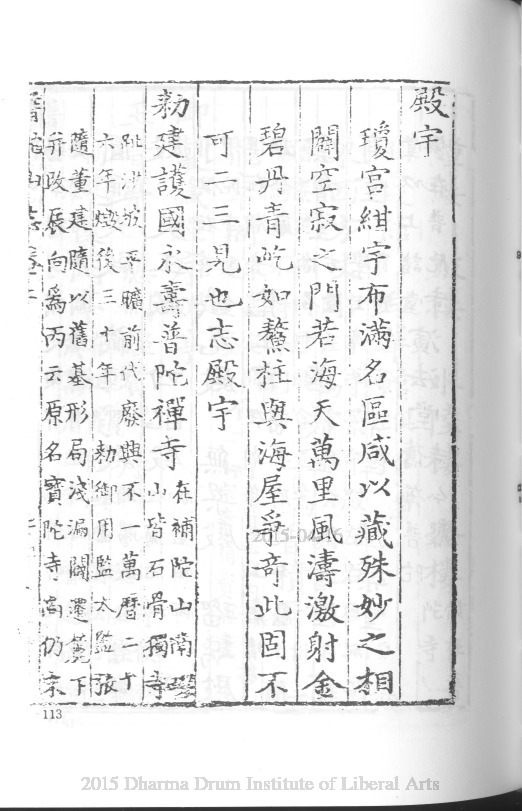 殿宇
瓊宮紺宇布滿名區咸以藏殊妙之相
闢空寂之門若海天萬里風濤激射金
碧丹青屹如鰲柱與海屋爭奇此固不
可二三見也志殿宇
勅建護國永壽普陀禪寺
在補陀山南
山皆石骨獨寺
趾沙坡平曠前代廢興不一萬曆二十
六年燬後三十年 勅御用監太監張
隨董建隨以舊基形局淺漏闢遷麓下
并改辰向爲丙云原名寶陀寺尚仍宋
113
2015 Dharma Drum Institute of Liberal Arts